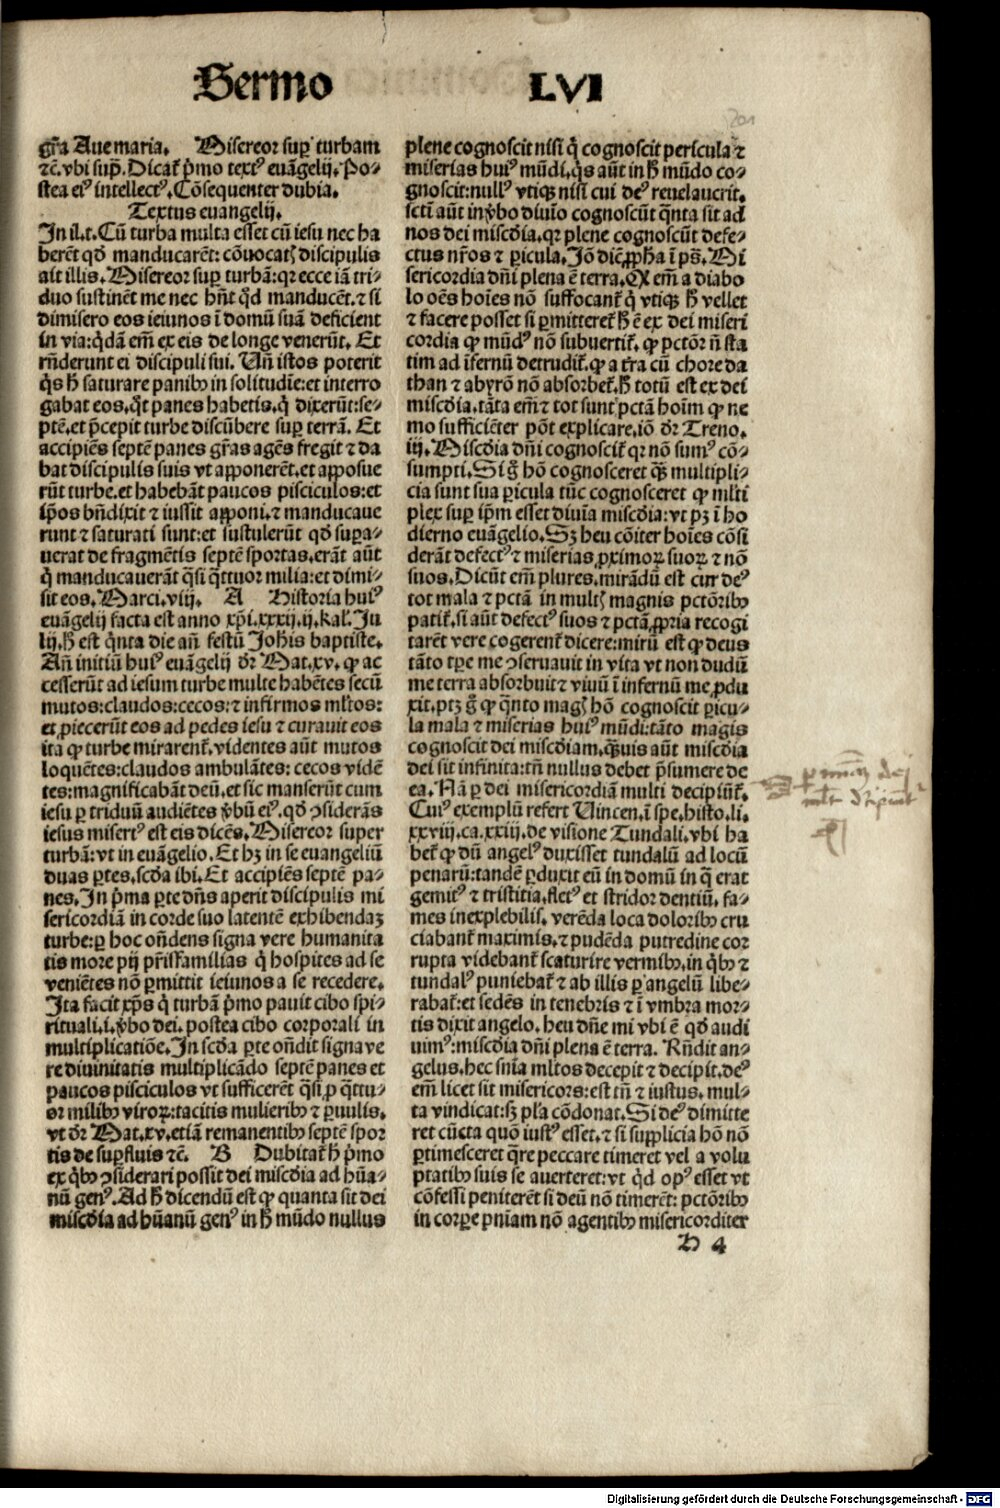 Sermo LVI
gr̄a Aue maria. Misereor suꝑ turbam
⁊c̄. vbi sup̄. Dicat᷑ p̄mo textꝰ euāgelij. Po⸗
stea eiꝰ intellectꝰ. Cōsequenter dubia.
Textus euangelij.
In il.t. Cū turba multa esset cū iesu nec ha
berēt qd̄ manducarēt: cōuocatꝭ discipulis
ait illis. Misereor suꝑ turbā: qr ecce iā tri⸗
duo sustinēt me nec hn̄t qd̄ manducēt. ⁊ si
dimisero eos ieiunos ī domū suā deficient
in via: qdā em̄ ex eis de longe venerūt. Et
rn̄derunt ei discipuli sui. Un̄ istos poterit
qs h̄ saturare panibꝰ in solitudīe: et interro
gabat eos. qt̄ panes habetis. q̇ dixerūt: se⸗
ptē. et p̄cepit turbe discūbere suꝑ terrā. Et
accipiēs septē panes gr̄as agēs fregit ⁊ da
bat discipulis suis vt apponerēt. et apposue
rūt turbe. et habebāt paucos pisciculos: et
ip̄os bn̄dixit ⁊ iussit apponi. ⁊ manducaue
runt ⁊ saturati sunt: et sustulerūt qd̄ suꝑa⸗
uerat de fragmētis septē sportas. erāt aūt
q̇ manducauerāt qsi qttuor milia: et dimi⸗
sit eos. Marci. viij. A Historia huiꝰ
euāgelij facta est anno xp̄i. xxxij. ij. kal'. Ju
lij. h̄ est qnta die an̄ festū Johīs baptiste.
An̄ initiū huiꝰ euāgelij dr̄ Mat. xv. ꝙ ac
cesserūt ad iesum turbe multe habētes secū
mutos: claudos: cecos: ⁊ infirmos ml̄tos:
et ꝓiecerūt eos ad pedes iesu ⁊ curauit eos
ita ꝙ turbe mirarent᷑. videntes aūt mutos
loquētes: claudos ambulātes: cecos vidē
tes: magnificabāt deū. et sic manserūt cum
iesu ꝑ triduū audiētes v̄bū eiꝰ. qd̄ ↄsiderās
iesus misertꝰ est eis dicēs. Misereor super
turbā: vt in euāgelio. Et hꝫ in se euangeliū
duas ꝑtes. scd̄a ibi. Et accipiēs septē pa⸗
nes. In p̄ma ꝑte dn̄s aperit discipulis mi
sericordiā in corde suo latentē exhibendaꝫ
turbe: ꝑ hoc on̄dens signa vere humanita
tis more pij pr̄isfamilias q̇ hospites ad se
veniētes nō ꝑmittit ieiunos a se recedere.
Ita facit xp̄s q̇ turbā p̄mo pauit cibo spi⸗
rituali. i. v̄bo dei. postea cibo corporali in
multiplicatiōe. In scd̄a ꝑte on̄dit signa ve
re diuinitatis multiplicādo septē panes et
paucos pisciculos vt sufficerēt qsi ꝓ qttu⸗
or milibꝰ viroꝝ: tacitis mulieribꝰ ⁊ ꝑuulis.
vt dr̄ Mat. xv. etiā remanentibꝰ septē spor
tis de suꝑfluis ⁊c̄. B Dubitat᷑ h̄ p̄mo
ex qbꝰ ↄsiderari possit dei miscd̄ia ad hūa⸗
nū genꝰ. Ad h̄ dicendū est ꝙ quanta sit dei
miscd̄ia ad hūanū genꝰ in h̄ mūdo nullus
plene cognoscit nisi q̇ cognoscit pericula ⁊
miserias huiꝰ mūdi. qs aūt in h̄ mūdo co⸗
gnoscit: nullꝰ vtiqꝫ nisi cui deꝰ reuelauerit.
sct̄i aūt in v̄bo diuīo cognoscūt qnta sit ad
nos dei miscd̄ia. qr plene cognoscūt defe⸗
ctus nr̄os ⁊ ꝑicula. Iō diē. ꝓph̄a ī ps̄. Mi
sericordia dn̄i plena ē terra. Q̇ em̄ a diabo
lo oēs hoīes nō suffocant᷑ q̇ vtiqꝫ h̄ vellet
⁊ facere posset si ꝑmitteret᷑ h̄ ē ex dei miseri
cordia ꝙ mūdꝰ nō subuertit᷑. ꝙ pctōr n̄ sta
tim ad īfernū detrudit᷑. ꝙ a tr̄a cū chore da
than ⁊ abyrō nō absorbet᷑. h̄ totū est ex dei
miscd̄ia. tāta em̄ ⁊ tot sunt pctā hoīm ꝙ ne
mo sufficiēter pōt explicare. iō dr̄ Treno.
iij. Miscd̄ia dn̄i cognoscit᷑ qr nō sumꝰ cō⸗
sumpti. Si g̊ hō cognosceret qꝫ multipli⸗
cia sunt sua ꝑicula tūc cognosceret ꝙ ml̄ti
plex suꝑ ip̄m esset diuīa miscd̄ia: vt pꝫ ī ho
dierno euāgelio. Sꝫ heu cōiter hoīes cōsi
derāt defectꝰ ⁊ miserias ꝓximoꝝ suoꝝ ⁊ nō
suos. Dicūt em̄ plures. mirādū est cur deꝰ
tot mala ⁊ pctā in multꝭ magnis pctōribꝰ
patit᷑. si aūt defectꝰ suos ⁊ pctā ꝓpria recogi
tarēt vere cogerent᷑ dicere: mirū est ꝙ deus
tāto tꝑe me ↄseruauit in vita vt non dudū
me terra absorbuit ⁊ viuū ī infernū me ꝑdu
xit. ptꝫ g̊ ꝙ qnto magꝭ hō cognoscit ꝑicu⸗
la mala ⁊ miserias huiꝰ mūdi: tāto magis
cognoscit dei miscd̄iam. qꝫuis aūt miscd̄ia
dei sit infinita: tn̄ nullus debet p̄sumere de
ea. Nā ꝑ dei misericordiā multi decipiūt᷑.
Cuiꝰ exemplū refert Uincen. ī spe. histo. li.
xxviij. ca. xxiij. de visione Tundali. vbi ha
bet᷑ ꝙ dū angelꝰ duxisset tundalū ad locū
penarū: tandē ꝑduxit eū in domū in q̄ erat
gemitꝰ ⁊ tristitia. fletꝰ et stridor dentiū. fa⸗
mes inexplebilis. verēda loca doloribꝰ cru
ciabant᷑ maximis. ⁊ pudēda putredine cor
rupta videbant᷑ scaturire vermibꝰ. in qbꝰ ⁊
tundalꝰ puniebat᷑ ⁊ ab illis ꝑ angelū libe⸗
rabat᷑: et sedēs in tenebris ⁊ ī vmbra mor⸗
tis dixit angelo. heu dn̄e mi vbi ē qd̄ audi
uimꝰ: miscd̄ia dn̄i plena ē terra. Rn̄dit an⸗
gelus. hec sn̄ia ml̄tos decepit ⁊ decipit. deꝰ
em̄ licet sit misericors: est tn̄ ⁊ iustus. mul⸗
ta vindicat: sꝫ pl'a cōdonat. Si deꝰ dimitte
ret cūcta quō iustꝰ esset. ⁊ si supplicia hō nō
ꝑtimesceret qre peccare timeret vel a volu
ptatibꝰ suis se auerteret: vt qd opꝰ esset vt
cōfessi peniterēt si deū nō timerēt: pctōribꝰ
in corꝑe pn̄iam nō agentibꝰ misericorditer
H 4
Digitalisierung gefördert durch die Deutsche Forschungsgemeinschaft - DFG